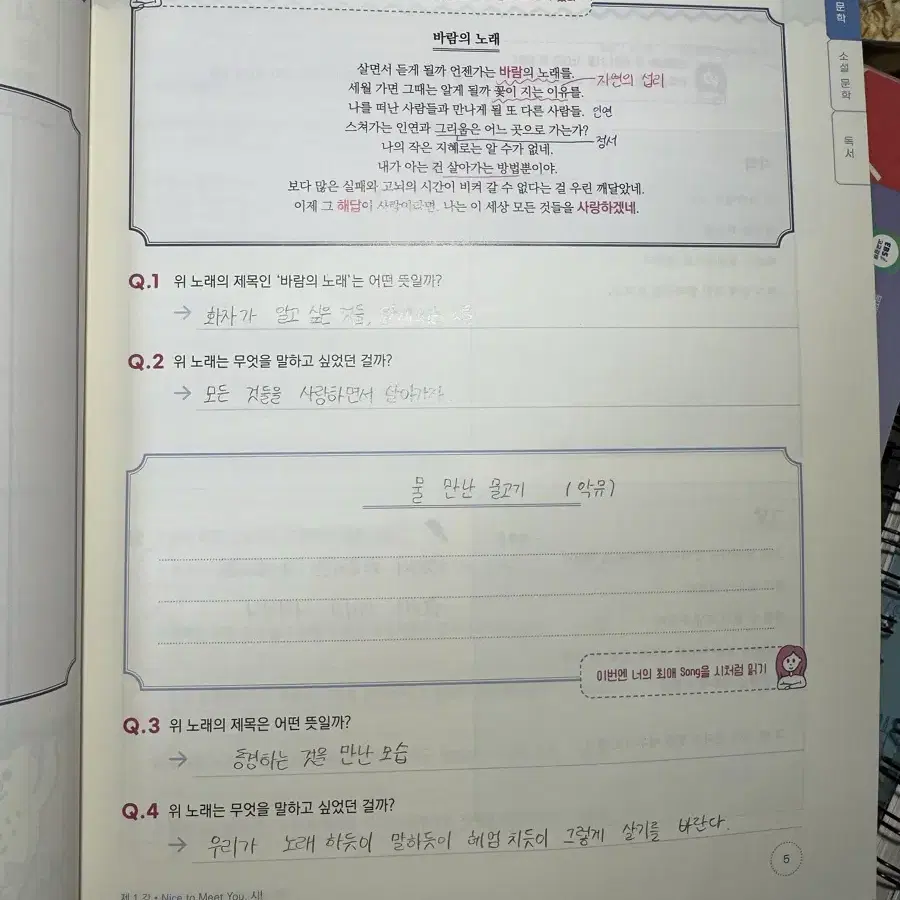 바람의 노래
살면서 듣게 될까 언젠가는 바람의 노래를.
자연의 섭리
세월 가면 그때는 알게 될까 꽃이 지는 이유를.
나를 떠난 사람들과 만나게 될 또 다른 사람들. 인연
스쳐가는 인연과 그리움은 어느 곳으로 가는가?
정서
나의 작은 지혜로는 알 수가 없네.
내가 아는 건 살아가는 방법뿐이야.
보다 많은 실패와 고뇌의 시간이 비켜 갈 수 없다는 걸 우린 깨달았네.
이제 그 해답이 사랑이라면, 나는 이 세상 모든 것들을 사랑하겠네.
Q.1 위 노래의 제목인 '바람의 노래'는 어떤 뜻일까?
→ 화자가 알고 싶은 것들,
Q.2 위 노래는 무엇을 말하고 싶었던 걸까?
→ 모든 것들을 사랑하면서 살아가자.
물 만난 물고기 (악뮤)
이번엔 너의 최애 Song을 시처럼 읽기
Q.3 위 노래의 제목은 어떤 뜻일까?
→ 동경하는 것을 만난 모습
Q.4 위 노래는 무엇을 말하고 싶었던 걸까?
→ 우리가 노래 하듯이 말하듯이 헤엄 치듯이 그렇게 살기를 바란다.
5
제 1 강 • Nice to Meet You, 시!
문학
소설 문학
독서
EBS